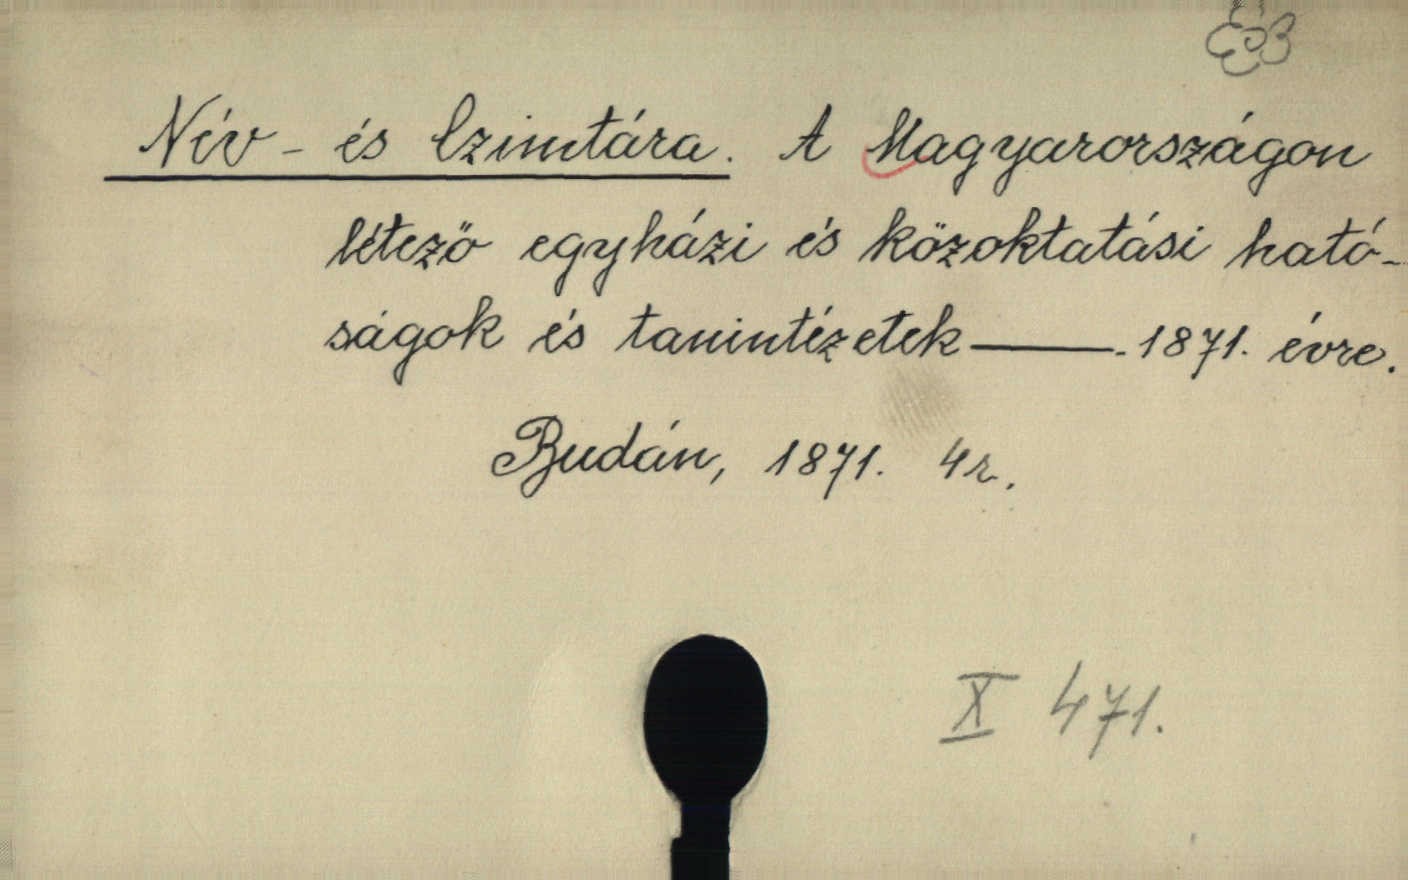 Név- és Czimtára. A Magyarországon
létező egyházi és közoktatási ható-
ságok és tanintézetek ——. 1871. évre.
Budán, 1871. 4r.
X 471.